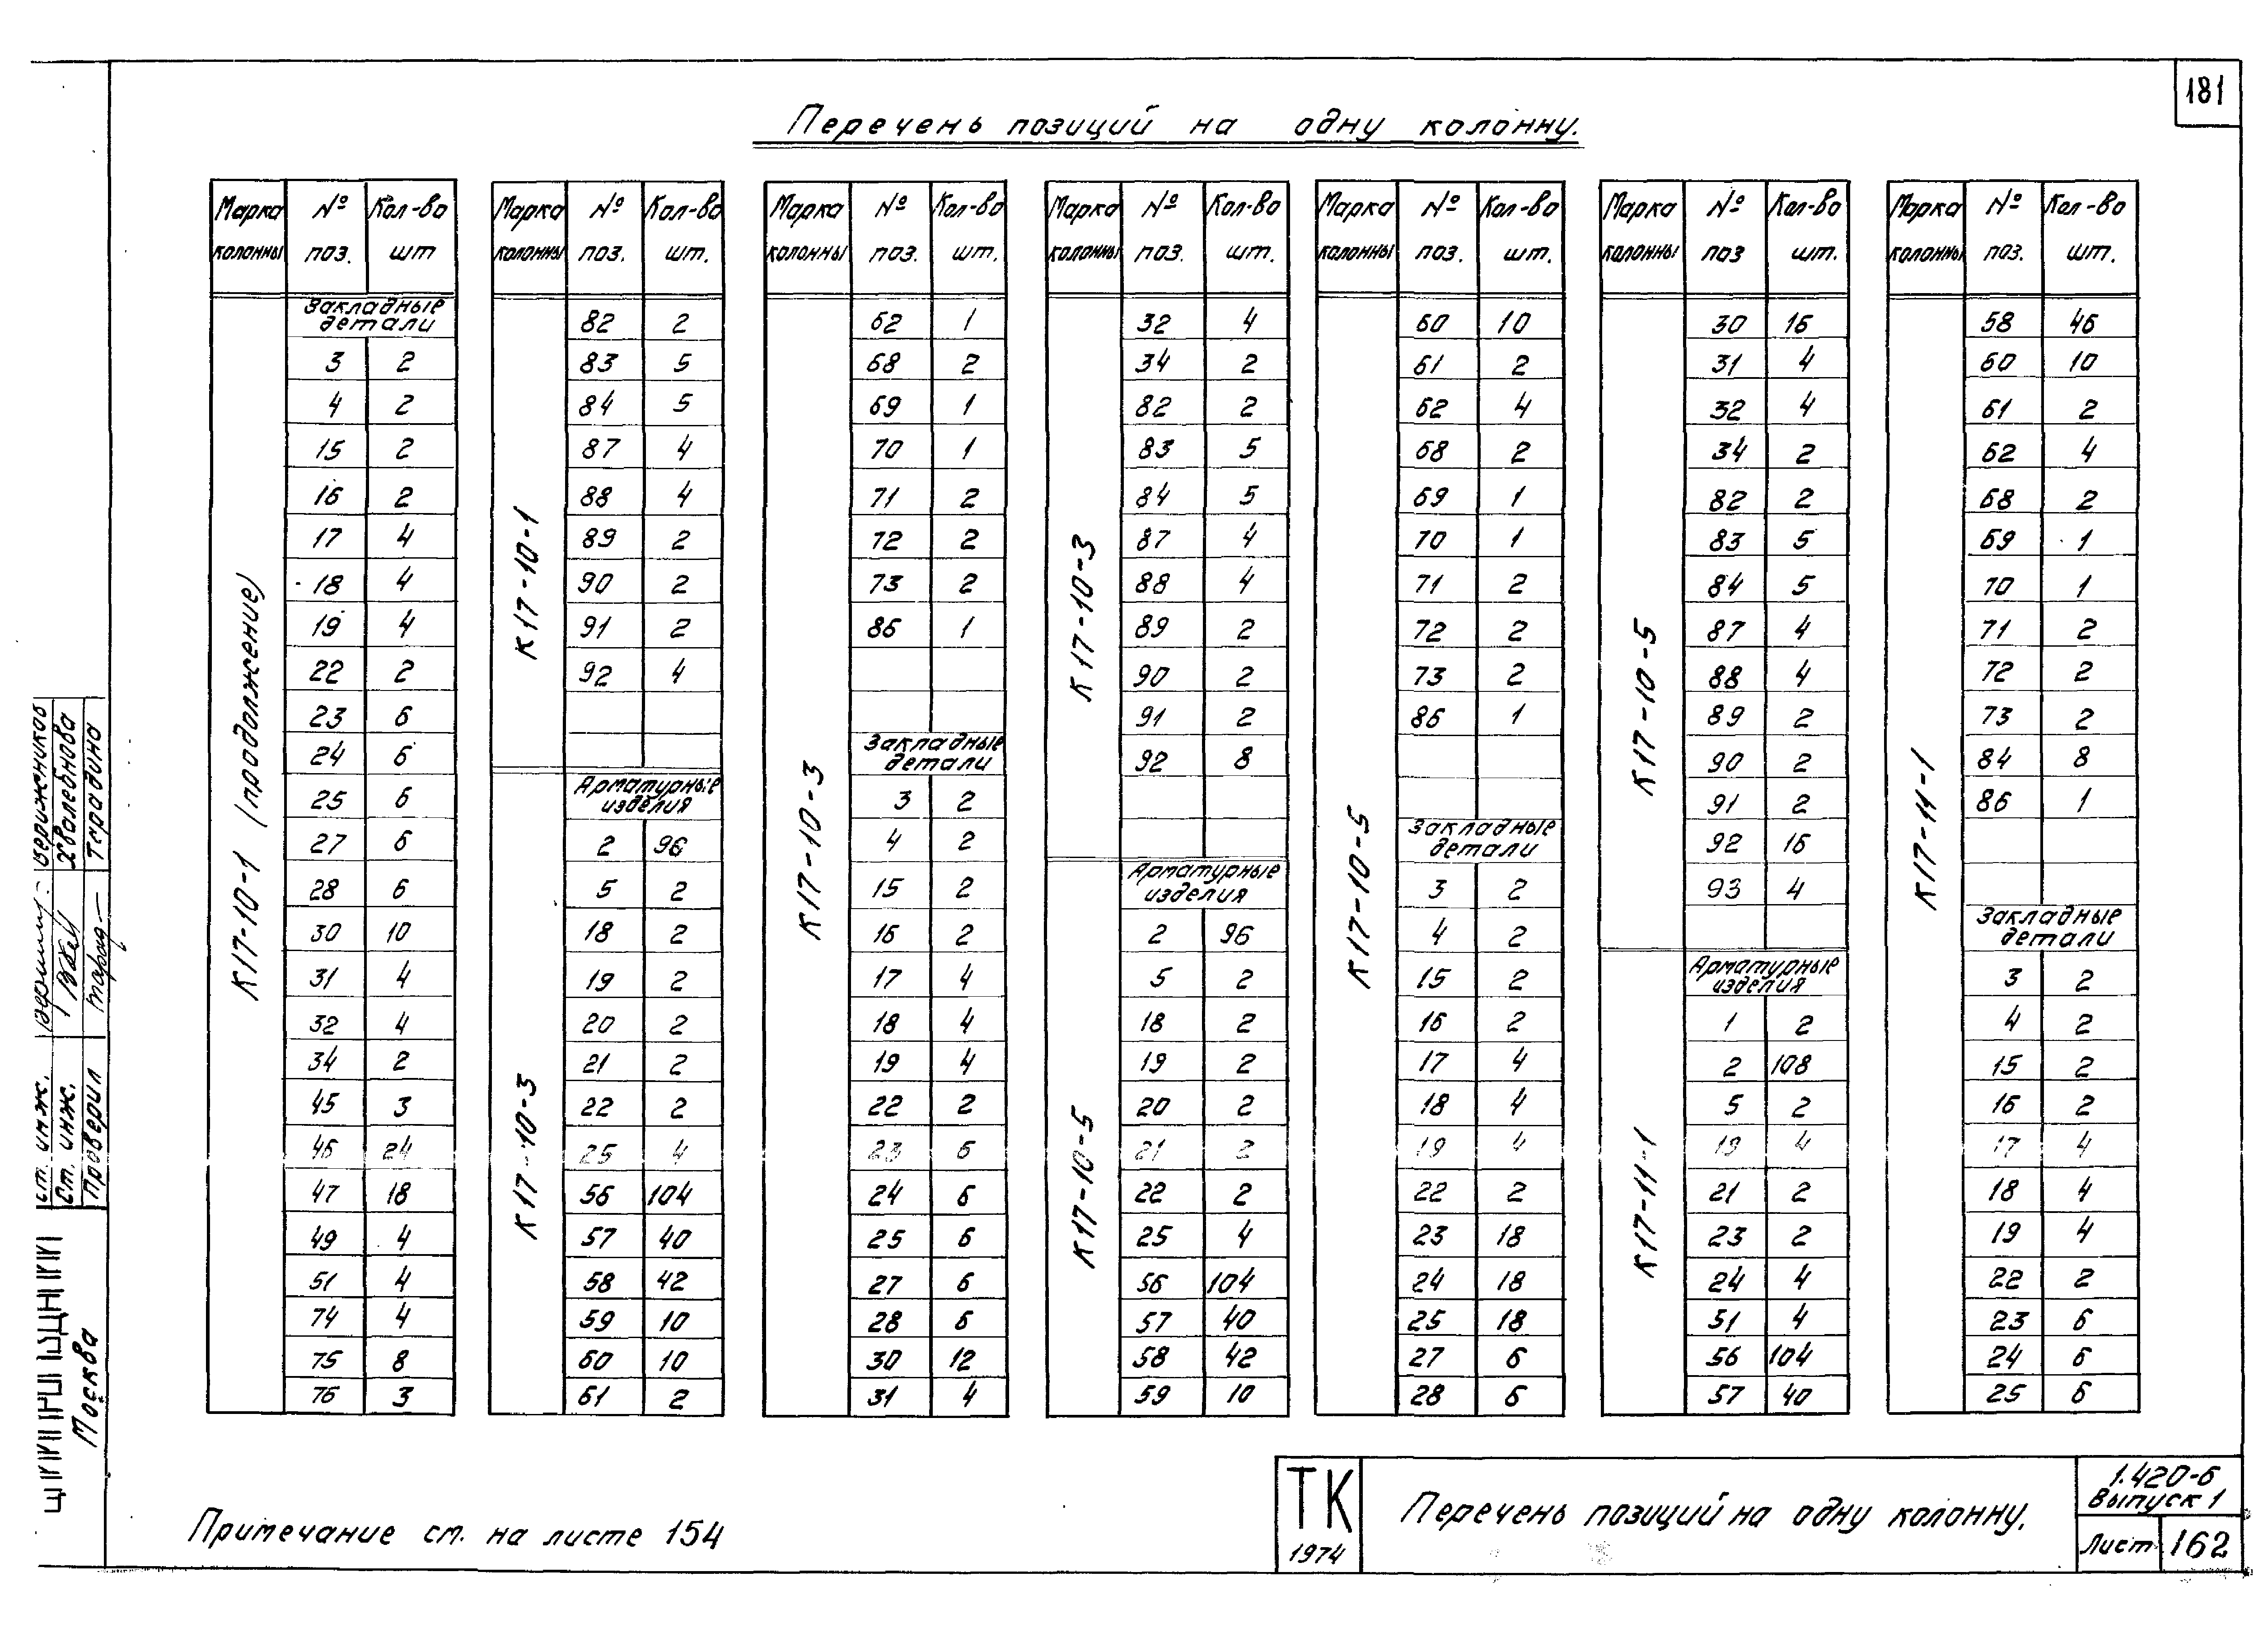 181
Перечень позиций на одну колонну.
Марка колонны № поз. Кол-во шт
К17-10-1 (продолжение)
Закладные детали
3 2
4 2
15 2
16 2
17 4
18 4
19 4
22 2
23 6
24 6
25 6
27 6
28 6
30 10
31 4
32 4
34 2
45 3
46 24
47 18
49 4
51 4
74 4
75 8
76 3
Марка колонны № поз. Кол-во шт.
К17-10-1
82 2
83 5
84 5
87 4
88 4
89 2
90 2
91 2
92 4
К17-10-3
Арматурные изделия
2 96
5 2
18 2
19 2
20 2
21 2
22 2
25 4
56 104
57 40
58 42
59 10
60 10
61 2
Марка колонны № поз. Кол-во шт.
К17-10-3
62 1
68 2
69 1
70 1
71 2
72 2
73 2
86 1
Закладные детали
3 2
4 2
15 2
16 2
17 4
18 4
19 4
22 2
23 6
24 6
25 6
27 6
28 6
30 12
31 4
Марка колонны № поз. Кол-во шт.
К17-10-3
32 4
34 2
82 2
83 5
84 5
87 4
88 4
89 2
90 2
91 2
92 8
К17-10-5
Арматурные изделия
2 96
5 2
18 2
19 2
20 2
21 2
22 2
25 4
56 104
57 40
58 42
59 10
Марка колонны № поз. Кол-во шт.
К17-10-5
60 10
61 2
62 4
68 2
69 1
70 1
71 2
72 2
73 2
86 1
Закладные детали
3 2
4 2
15 2
16 2
17 4
18 4
19 4
22 2
23 18
24 18
25 18
27 6
28 6
Марка колонны № поз Кол-во шт.
К17-10-5
30 16
31 4
32 4
34 2
82 2
83 5
84 5
87 4
88 4
89 2
90 2
91 2
92 16
93 4
К17-11-1
Арматурные изделия
1 2
2 108
5 2
19 4
21 2
23 2
24 4
51 4
56 104
57 40
Марка колонны № поз. Кол-во шт.
К17-11-1
58 46
60 10
61 2
62 4
68 2
69 1
70 1
71 2
72 2
73 2
84 8
86 1
Закладные детали
3 2
4 2
15 2
16 2
17 4
18 4
19 4
22 2
23 6
24 6
25 6
Ст. инж. Верижеников
Ст. инж. Хвалебнова
Проверил Тетрадина
Москва
Примечание см. на листе 154
ТК
1974
Перечень позиций на одну колонну.
1.420-6
Выпуск 1
Лист 162